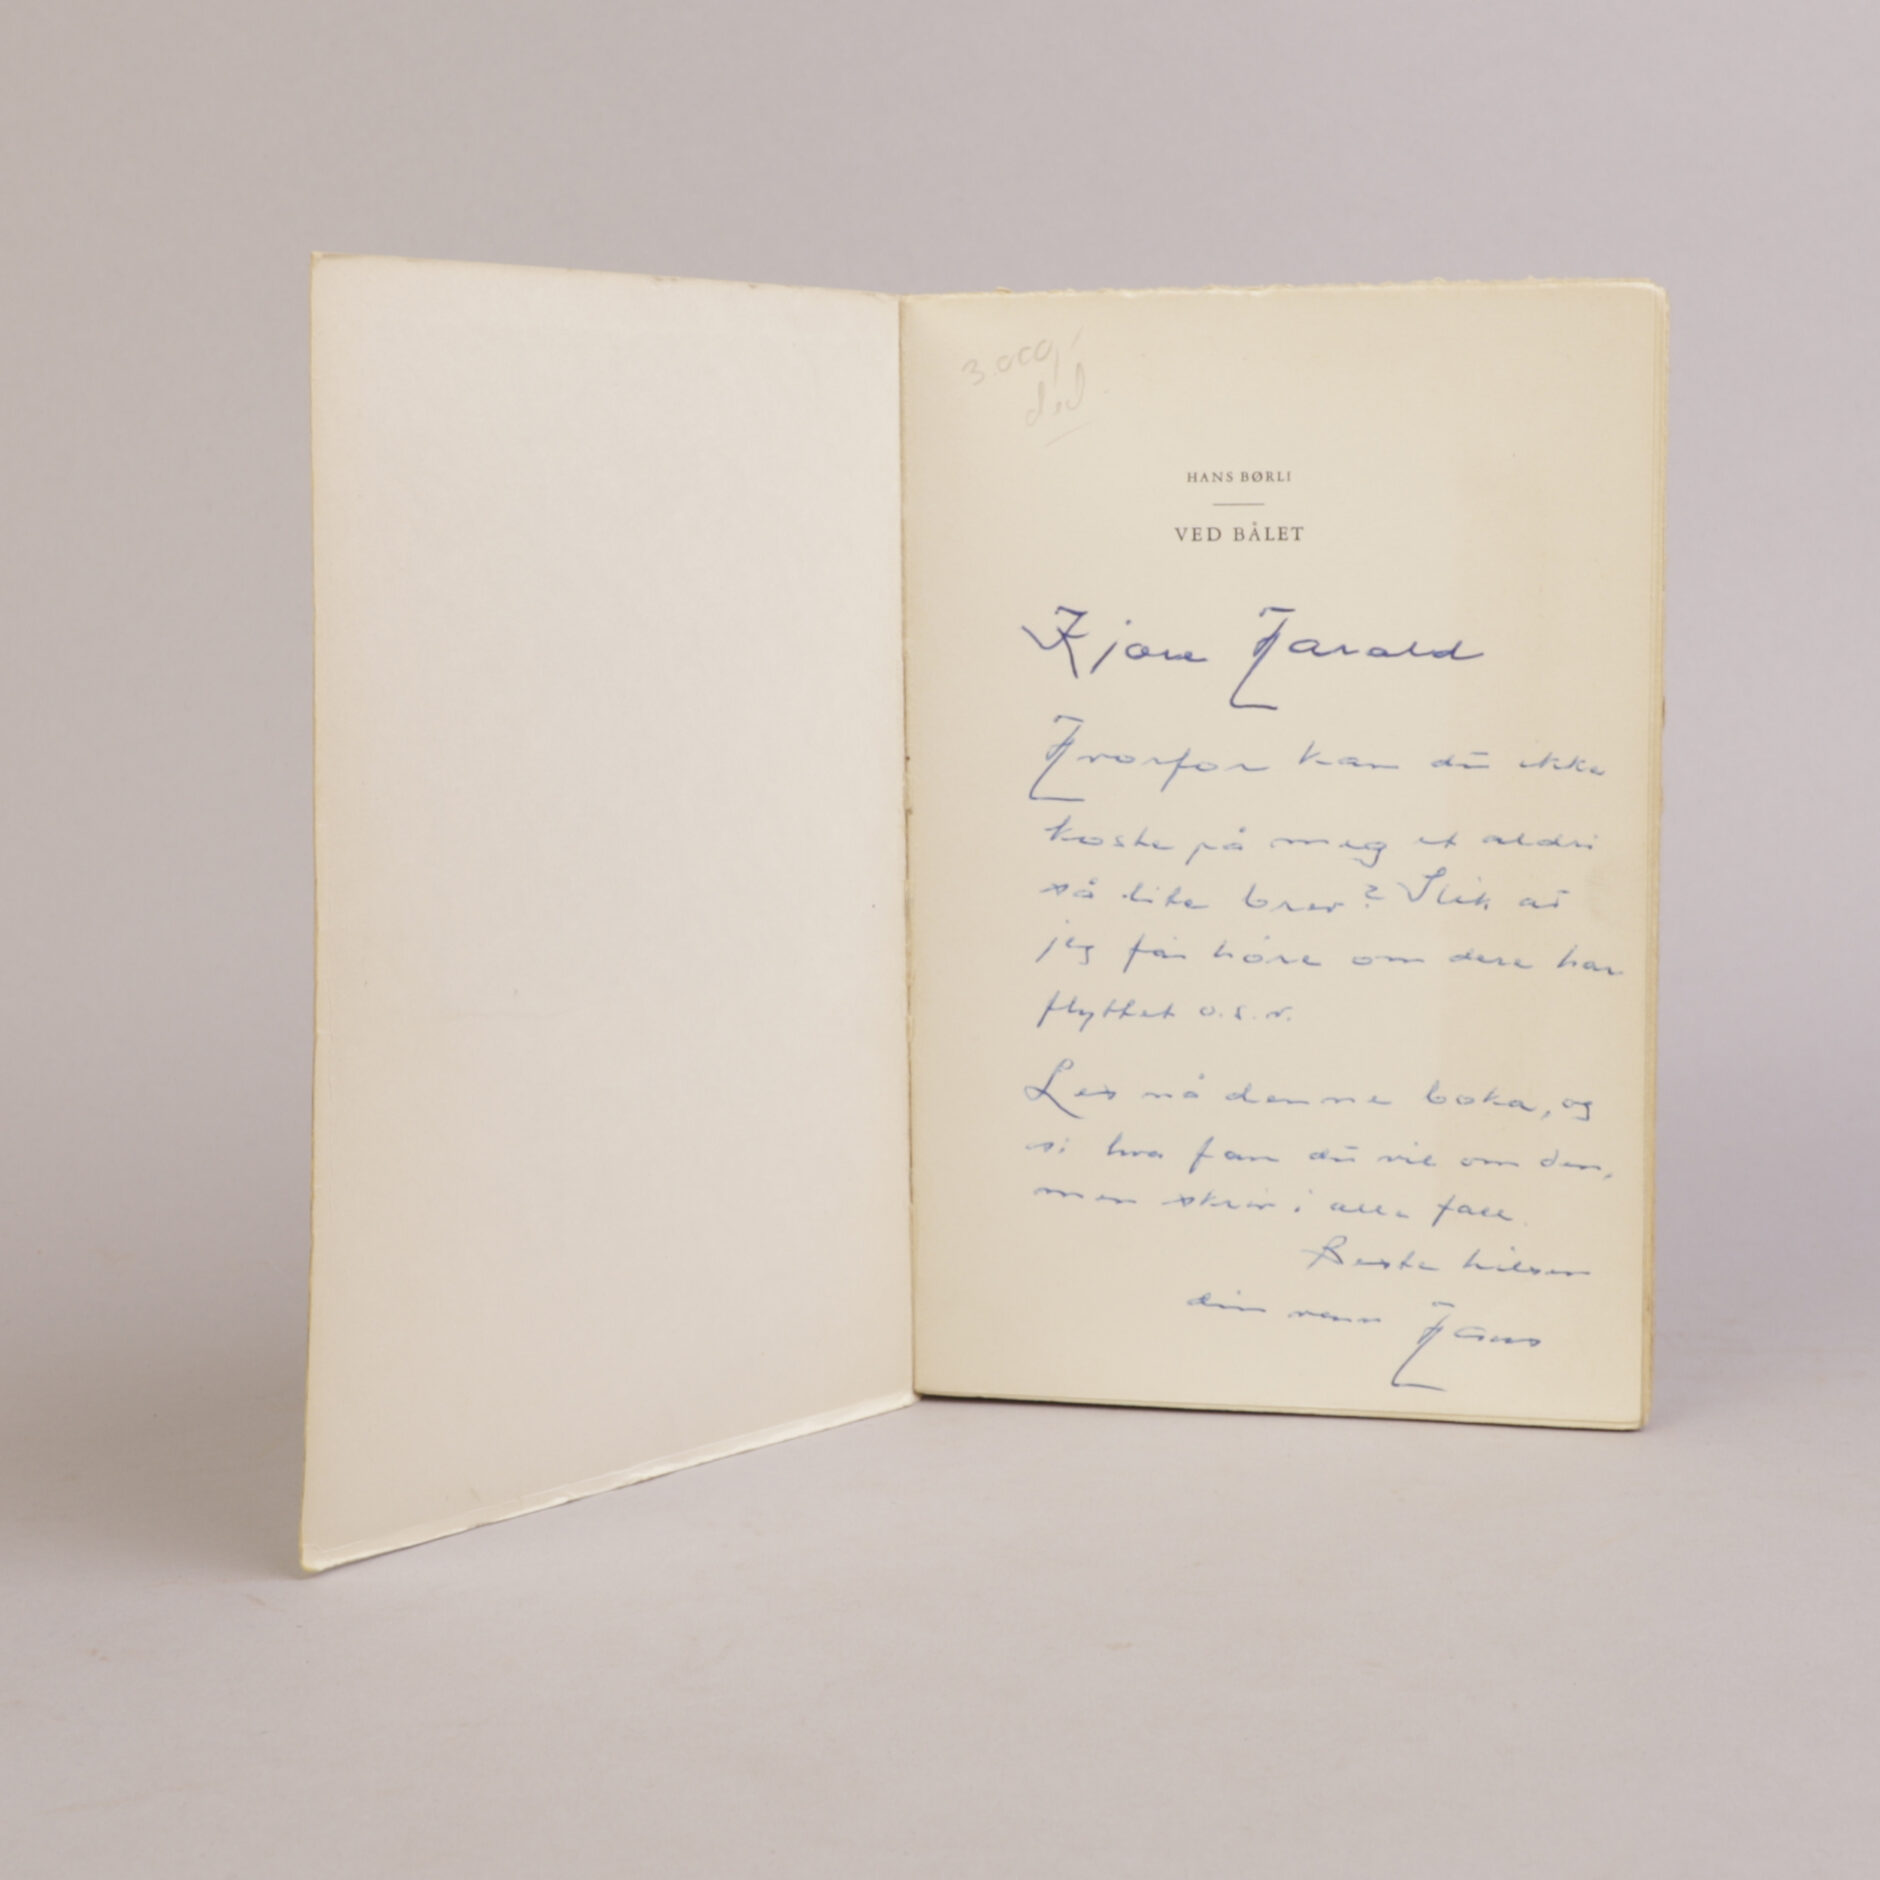 3.000,-
ded.
HANS BØRLI
VED BÅLET
Kjære Harald
Hvorfor kan du ikke
koste på meg et aldri
så lite brev? Slik at
jeg får høre om dere har
flyttet o.s.v.
Les nå denne boka, og
si hva fan du vil om den,
men skriv i alle fall.
Beste hilsen
din venn Hans